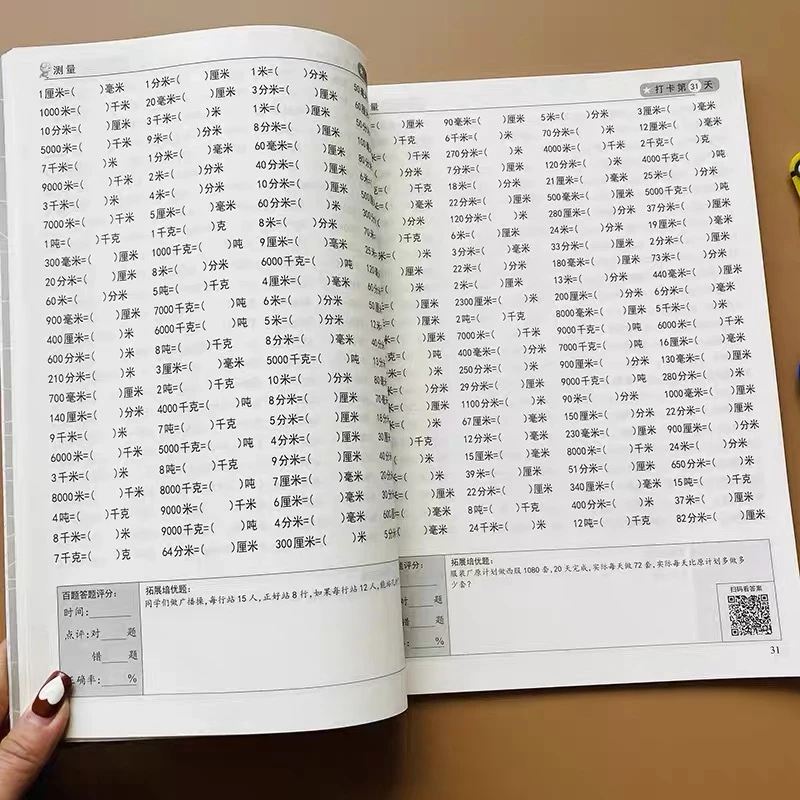 测量
1厘米=(　)毫米 1分米=(　)厘米 1米=(　)分米
1000米=(　)千米 20毫米=(　)厘米 3分米=(　)厘米
10分米=(　)厘米 3千米=(　)米 1米=(　)厘米
5000米=(　)千米 9米=(　)分米 8分米=(　)厘米
7千米=(　)米 1分米=(　)毫米 60毫米=(　)厘米
9000米=(　)千米 2米=(　)分米 40分米=(　)厘米
3千米=(　)米 4米=(　)分米 10分米=(　)厘米
7000米=(　)千米 5厘米=(　)毫米 60分米=(　)米
1吨=(　)千克 1千克=(　)克 8米=(　)分米
300毫米=(　)厘米 1000千克=(　)吨 9厘米=(　)毫米
20分米=(　)厘米 8米=(　)分米 6000千克=(　)吨
60米=(　)分米 5吨=(　)千克 4厘米=(　)毫米
900毫米=(　)厘米 7000千克=(　)吨 6米=(　)分米
400厘米=(　)米 6000千克=(　)吨 5米=(　)分米
600分米=(　)米 8吨=(　)千克 8分米=(　)毫米
210分米=(　)米 3厘米=(　)毫米 5000千克=(　)吨
700毫米=(　)厘米 2吨=(　)千克 10米=(　)分米
140厘米=(　)分米 4000千克=(　)吨 8分米=(　)厘米
9千米=(　)米 7吨=(　)千克 5分米=(　)厘米
6000米=(　)千米 5000千克=(　)吨 4分米=(　)毫米
3千米=(　)米 8吨=(　)千克 9分米=(　)厘米
8000米=(　)千米 8000千克=(　)吨 7厘米=(　)毫米
4吨=(　)千克 9000米=(　)千米 6厘米=(　)毫米
8千米=(　)米 9000千克=(　)吨 4分米=(　)毫米
7千克=(　)克 64分米=(　)厘米 300厘米=(　)毫米
百题答题评分:
时间:
点评:对 题
错 题
正确率: %
拓展培优题:
同学们做广播操,每行站15人,正好站8行,如果每行站12人,
打卡第31天
90毫米=(　)厘米 5米=(　)分米 3厘米=(　)毫米
6千米=(　)米 70分米=(　)米 12厘米=(　)毫米
270分米=(　)米 4000米=(　)千米 2千克=(　)克
7分米=(　)厘米 120分米=(　)米 4000千克=(　)吨
18米=(　)分米 21厘米=(　)毫米 25米=(　)分米
22分米=(　)厘米 500毫米=(　)厘米 5000千克=(　)吨
120分米=(　)米 280厘米=(　)分米 37分米=(　)厘米
6米=(　)厘米 24米=(　)分米 19厘米=(　)毫米
3分米=(　)毫米 33分米=(　)厘米 2分米=(　)厘米
22米=(　)分米 180毫米=(　)厘米 73米=(　)分米
2米=(　)厘米 13米=(　)分米 440毫米=(　)厘米
2300厘米=(　)米 200厘米=(　)分米 6分米=(　)厘米
2吨=(　)千克 8000毫米=(　)厘米 5千米=(　)米
7000米=(　)千米 9000千克=(　)吨 6000米=(　)千米
400毫米=(　)分米 7000千克=(　)吨 16厘米=(　)毫米
250分米=(　)米 900厘米=(　)分米 130毫米=(　)厘米
29分米=(　)厘米 9000千克=(　)吨 280分米=(　)米
1100分米=(　)米 90米=(　)分米 1000毫米=(　)厘米
67厘米=(　)毫米 150厘米=(　)分米 22分米=(　)厘米
12分米=(　)毫米 230毫米=(　)厘米 900厘米=(　)分米
15厘米=(　)毫米 8000米=(　)千米 24米=(　)分米
39米=(　)厘米 51分米=(　)厘米 650分米=(　)米
22分米=(　)厘米 340厘米=(　)毫米 15吨=(　)千克
8吨=(　)千克 400分米=(　)米 37米=(　)厘米
24千米=(　)米 12千克=(　)克 82分米=(　)厘米
评分:
题
题
%
拓展培优题:
服装厂原计划做西服1080套,20天完成,实际每天做72套,实际每天比原计划多做多
少套?
扫码看答案
31